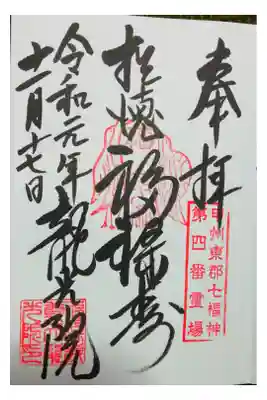 奉拝
甲州東郡七福神
第四番霊場
福禄寿
龍光院
令和元年
十一月十七日